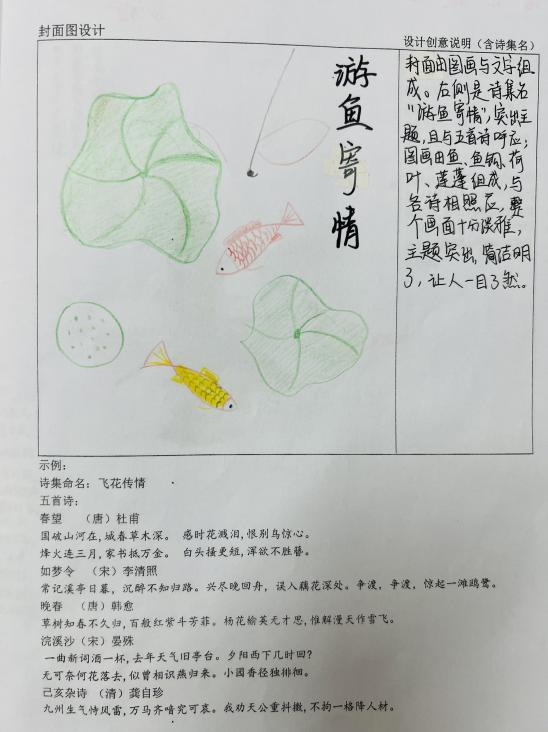 封面图设计
设计创意说明（含诗集名）
游鱼寄情
封面由图画与文字组
成。右侧是诗集名
“游鱼寄情”，突出主
题，且与五首诗呼应；
图画由鱼、鱼钩、荷
叶、莲蓬组成，与
各诗相照应，整
个画面十分淡雅，
主题突出，简洁明
了，让人一目了然。
示例：
诗集命名：飞花传情
五首诗：
春望 （唐）杜甫
国破山河在，城春草木深。 感时花溅泪，恨别鸟惊心。
烽火连三月，家书抵万金。 白头搔更短，浑欲不胜簪。
如梦令 （宋）李清照
常记溪亭日暮，沉醉不知归路。兴尽晚回舟，误入藕花深处。争渡，争渡，惊起一滩鸥鹭。
晚春 （唐）韩愈
草树知春不久归，百般红紫斗芳菲。杨花榆荚无才思，惟解漫天作雪飞。
浣溪沙（宋）晏殊
一曲新词酒一杯，去年天气旧亭台。夕阳西下几时回？
无可奈何花落去，似曾相识燕归来。小园香径独徘徊。
己亥杂诗 （清）龚自珍
九州生气恃风雷，万马齐喑究可哀。我劝天公重抖擞，不拘一格降人材。